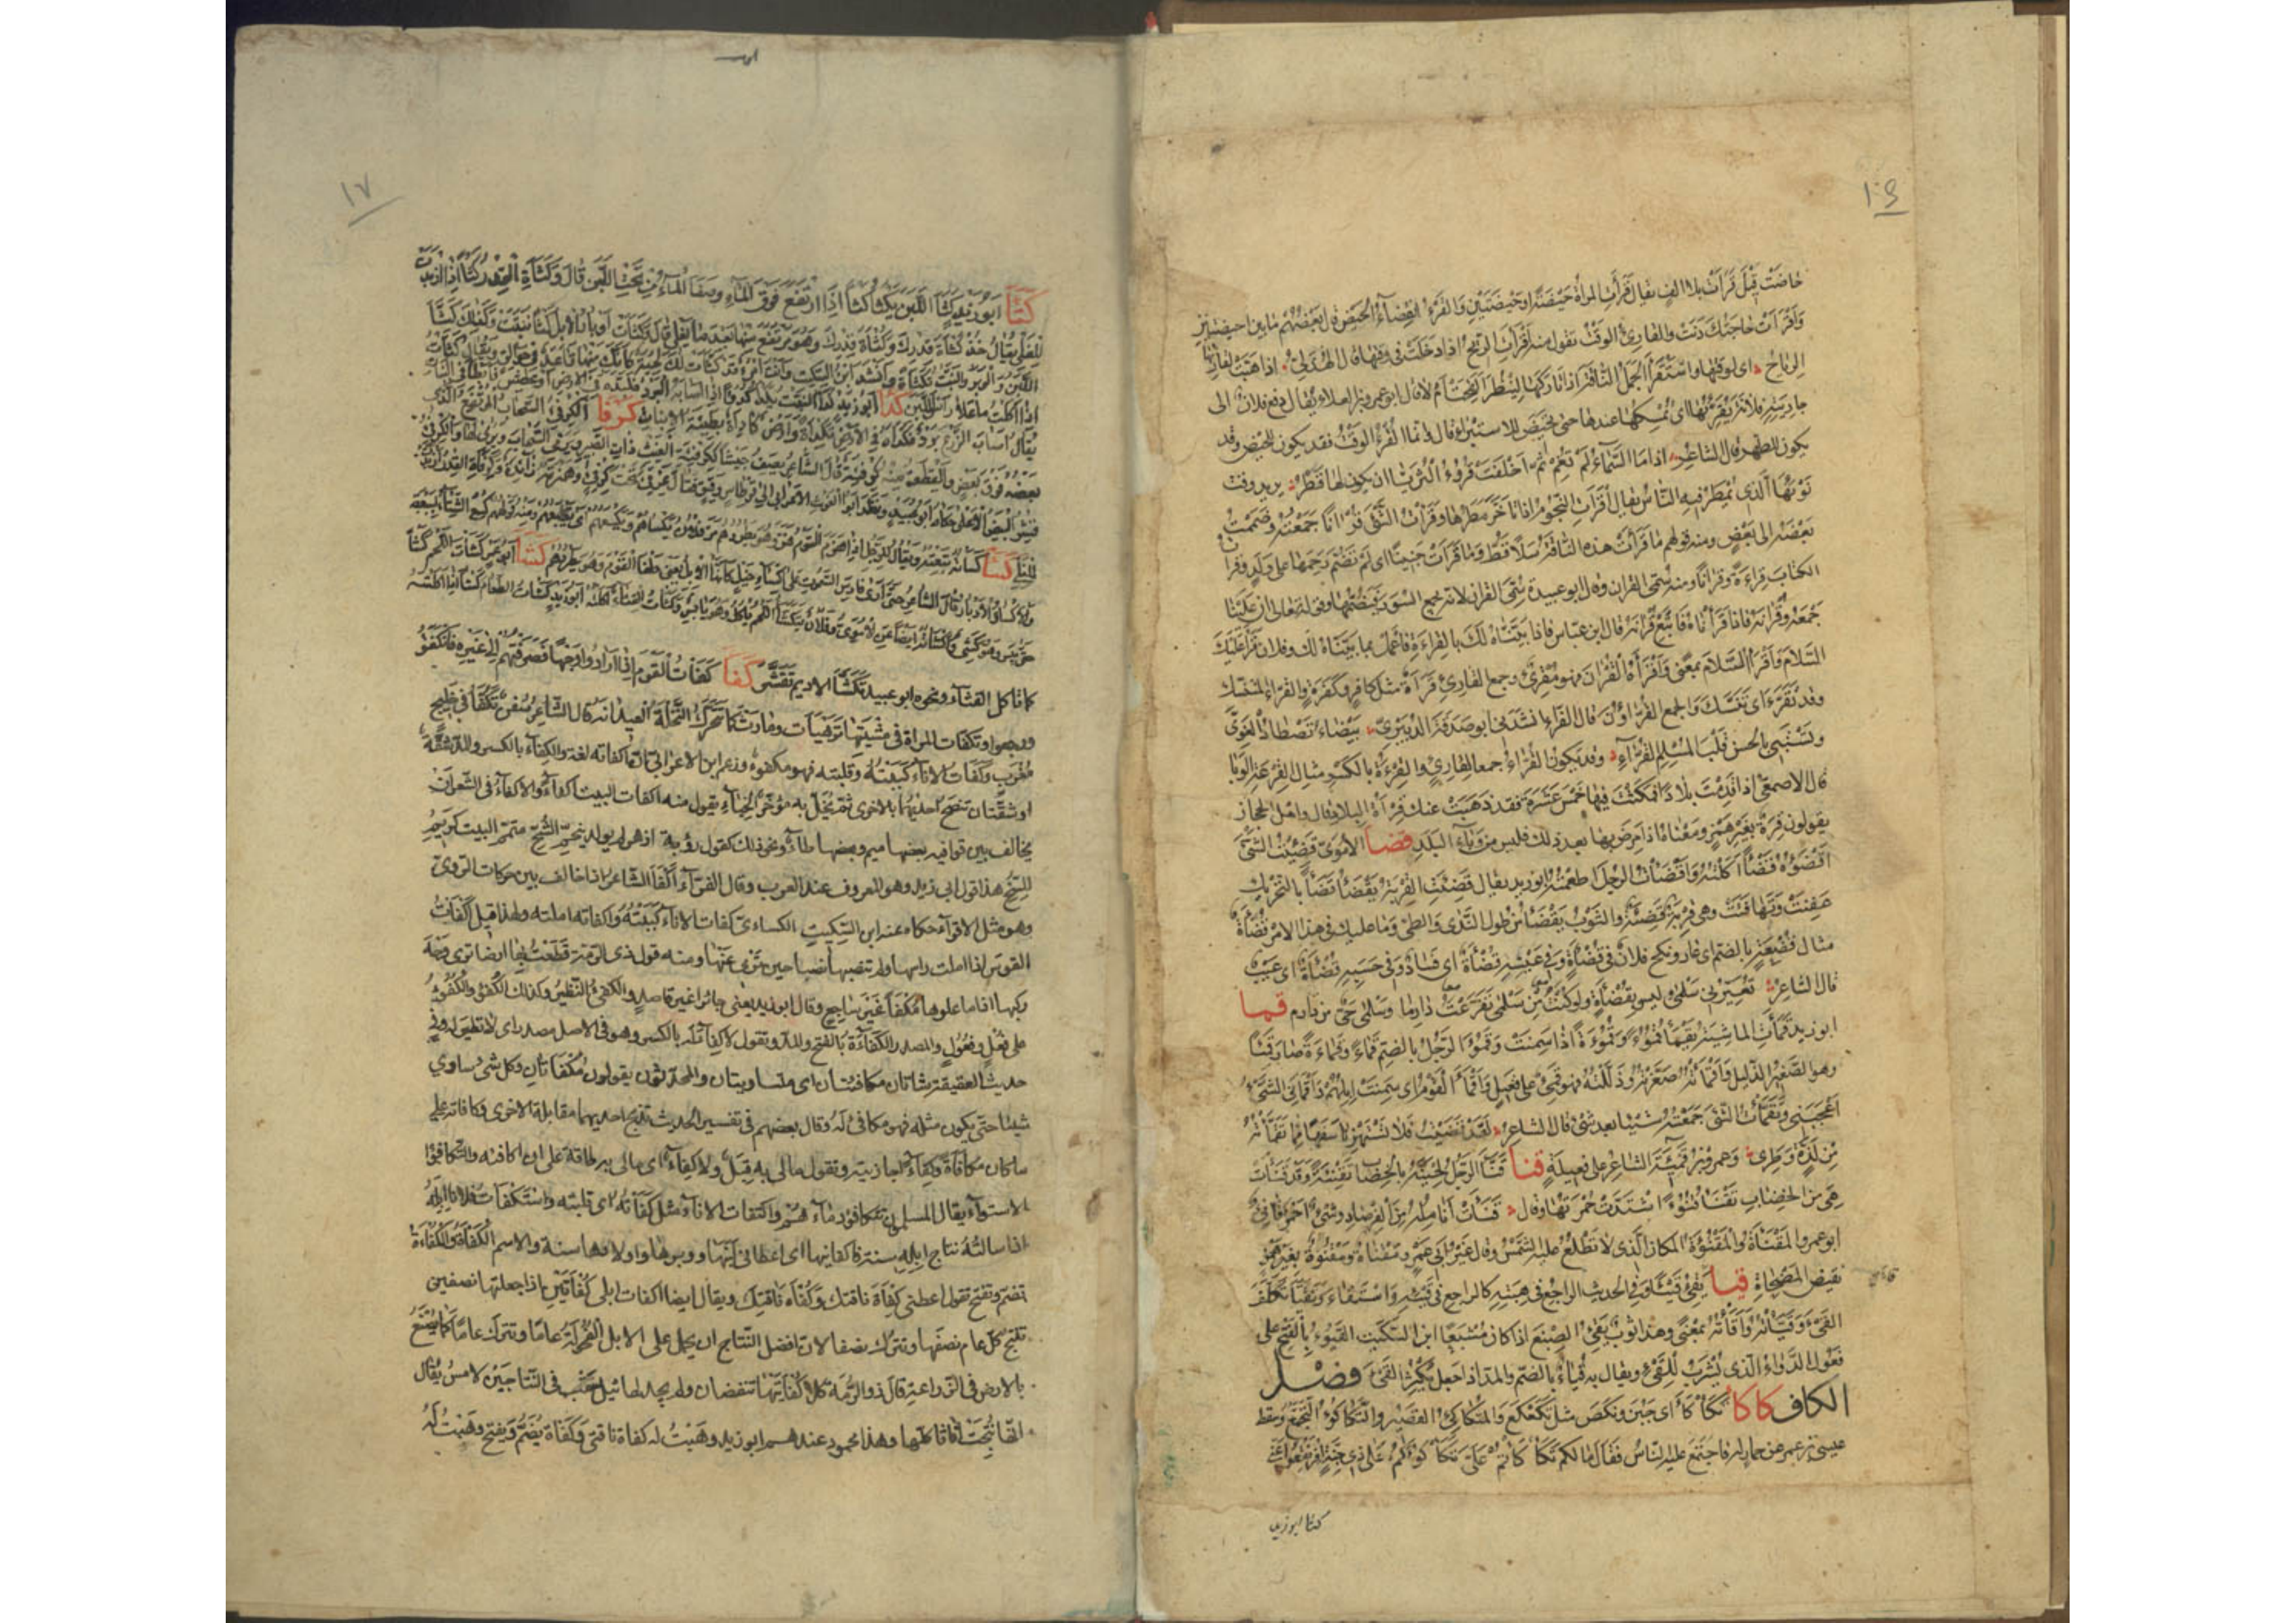 ١٠٩
حاضت قبل قرأت بلا الف يقال قرأت المرأة حيضة او حيضتين والقرء انقضاء الحيض قال بعضهم ما بين الحيضتين
واقرأت حاجتك دنت والقارئ الوقت تقول منه اقرأت الريح اذا دخلت في وقتها قال الهذلي اذا هبت لقارئها
الرياح اي لوقتها واستقرأ الجمل الناقة اذا تاركها لينظر القحت ام لا قال ابو عمرو بن العلاء يقال دفع فلان الى
جاريته فلانة تقرئها اي تمسكها عندها حتى تحيض للاستبراء قال وانما القرء الوقت فقد يكون للحيض وقد
يكون للطهر قال الشاعر اذا ما السماء لم تغم ثم اخلفت قروء الثريا ان يكون لها قطر يريد وقت
نوئها الذي يمطر فيه الناس يقال اقرأت النجوم اذا تأخر مطرها وقرأت الشئ قرآنا جمعته وضممت
بعضه الى بعض ومنه قولهم ما قرأت هذه الناقة سلا قط وما قرأت جنينا اي لم تضم رحمها على ولد وقرأت
الكتاب قراءة وقرآنا ومنه سمى القرآن وقال ابو عبيدة سمى القرآن لانه يجمع السور فيضمها وقوله تعالى ان علينا
جمعه وقرآنه فاذا قرأناه فاتبع قرآنه قال ابن عباس فاذا بيناه لك بالقراءة فاعمل بما بيناه لك وفلان قرأ عليك
السلام واقرأ السلام بمعنى واقرأه القرآن فهو مقرئ وجمع القارئ قرأة مثل كافر وكفرة والقراء المتنسك
وقد تقرء اي تنسك والجمع القراؤن قال الفراء انشدني ابو صدقة الدبيري بيضاء تصطاد الغوي
وتستبي بالحسن قلب المسلم القراء وقد يكون القراء جمعا لقاري والقرءة بالكسر مثال القرعة الوبا
قال الاصمعي اذا قدمت بلادا فمكثت فيها خمس عشرة فقد ذهبت عنك قرأة البلاد قال واهل الحجاز
يقولون قرة بغير همز ومعناه اذا مرض بها بعد ذلك فليس من وباء البلد قضا الاموي قضئت الشئ
اقضؤه قضأ اكلته واقضأت الرجل اطعمته ابو زيد يقال قضئت القربة تقضأ قضأ بالتحريك
عفنت وتهافتت وهي قربة قضئة والثوب يقضأ من طول الندى والطي وما عليك في هذا الامر قضأة
مثال قضعة بالضم اي عار ونكح فلان في قضأة وفي عينه قضأة اي فساد وفي حسبه قضأة اي عيب
قال الشاعر تعيرني سلمى وليس بقضأة ولو كنت من سلمى تفرعت دارما وسلمى حي من دارم قما
ابو زيد قمأت الماشية تقمأ قموءا وقموءة اذا سمنت وقمؤ الرجل بالضم قماء وقماءة صار قميئا
وهو الصغير الذليل واقمأته صغرته وذللته فهو قمئ على فعيل واقمأ القوم اي سمنت ابلهم واقمأني الشئ
اعجبني وتقمأت الشئ جمعته شيئا بعد شئ قال الشاعر لقد قضيت فلا تستهزئا سفها مما تقمأته
من لذة وطري وعمرو بن قميئة الشاعر على فعيلة قنا قنأ الرجل لحيته بالخضاب تقنئة وقد قنأت
هي من الخضاب تقنأ قنوءا اشتدت حمرتها وقال قنأت انامله من الفرصاد وشئ احمر قانئ
ابو عمرو المقنأة والمقنؤة المكان الذي لا تطلع عليه الشمس وقال غير ابي عمرو مقناة ومقنوة بغير همز
نقيض المضحاة قيا يقئ قيئا وفي الحديث الراجع في هبته كالراجع في قيئه واستقاء وتقيأ تكلف
القئ وقيأته واقأته بمعنى وهذا ثوب يقئ الصبغ اذا كان مشبعا ابن السكيت القيوء بالفتح على
فعول الدواء الذي يشرب للقئ ويقال به قياء بالضم والمد اذا جعل يكثر القئ فصل
الكاف كاكا تكأكأ اي جبن ونكص مثل تكعكع والمتكأكئ القصير والتكأكؤ التجمع وسقط
عيسى بن عمر عن حمار له فاجتمع عليه الناس فقال ما لكم تكأكأتم علي تكأكؤكم على ذي جنة افرنقعوا عني
كثا ابو زيد
١٧
كثا ابو زيد كثأ اللبن يكثأ كثأ اذا ارتفع فوق الماء وصفا الماء من تحت اللبن قال وكثأت القدر كثأ اذا ازبدت
للغلي يقال خذ كثأة قدرك وكثأة قدرك وهو ما ارتفع منها بعد ما تغلي
اللبن والوبر والنبت تكثئة وانشد ابن السكيت وانت امرؤ قد كثأت لك لحية كأنك منها قاعد في جوالق ويقال كثأت
اذا اكلت ما على رأس اللبن كدا ابو زيد كدأ النبت يكدأ كدوءا اذا اصابه البرد فلبده في الارض او عطش فابطأ في النبات
يقال اصاب الزرع برد فكدأه في الارض تكدئة وارض كادئة بطيئة الانبات كرفا الكرفئ السحاب المرتفع الذي
بعضه فوق بعض والقطعة منه كرفئة قال الشاعر يصف جيشا ككرفئة الغيث ذات الصبير
كسا كسأته تبعته ويقال للرجل اذا هزم القوم فمر وهو يطردهم مر فلان يكسأهم ويكسعهم
كشا ابو عمرو كشأت اللحم كشأ
حتى يبس وفلان يتكشأ اللحم يأكله وهو يابس وكشأت القثاء اكلته ابو زيد كشأت الطعام كشأ اذا اكلته
كما تأكل القثاء ونحوه ابو عبيد تكشأ الاديم تقشر كفا كفأت القوم اذا ارادوا وجها فصرفتهم الى غيره فانكفؤا
ورجعوا وتكفأت المرأة في مشيتها ترهيأت ومادت كما تتحرك النخلة العيدانة قال الشاعر سفن تكفأ في خليج
مغرب وكفأت الاناء كببته وقلبته فهو مكفوء وزعم ابن الاعرابي ان اكفأته لغة والكفاء بالكسر والمد شقة
او شقتان تنصح احديهما بالاخرى ثم يخل به مؤخر الخباء يقول منه اكفأت البيت اكفاء والاكفاء في الشعر ان
يخالف بين قوافيه بعضها ميم وبعضها طاء ونحو ذلك كقول رؤبة ازهر لم يولد بنجم الشح متمم البيت كريم
السنخ هذا قول ابي زيد وهو المعروف عند العرب وقال الفراء اكفأ الشاعر اذا خالف بين حركات الروي
وهو مثل الاقواء حكاه عنه ابن السكيت الكسائي كفأت الاناء كببته واكفأته املته ولهذا قيل اكفأت
القوس اذا املت رأسها ولم تنصبها نصبا حين ترمي عنها ومنه قول ذي الرمة قطعت بها ارضا ترى وجه
ركبها اذا ما علوها مكفأ غير ساجع وقال ابو زيد يعني جائرا غير قاصد والكفئ النظير وكذلك الكفؤ والكفوء
على فعل وفعول والمصدر الكفاءة بالفتح والمد وتقول لا كفاء له بالكسر وهو في الاصل مصدر اي لا نظير له وفي
حديث العقيقة شاتان مكافئتان اي متساويتان والمحدثون يقولون مكفأتان وكل شئ ساوى
شيئا حتى يكون مثله فهو مكافئ له وقال بعضهم في تفسير الحديث تذبح احديهما مقابلة الاخرى وكافأته على
ما كان مكافأة وكفاء جازيته وتقول ما لي به قبل ولا كفاء اي ما لي به طاقة على ان اكافئه والتكافؤ
الاستواء يقال المسلمون تتكافؤ دماءهم واكتفأت الاناء مثل كفأته اي قلبته واستكفأت فلانا ابله
اذا سألته نتاج ابله سنة فاكفأنيها اي اعطاني لبنها ووبرها واولادها سنة والاسم الكفأة والكفأة
تضم وتفتح تقول اعطني كفأة ناقتك وكفأة ناقتك ويقال ايضا اكفأت ابلي كفأتين اذا جعلتها نصفين
تنتج كل عام نصفها وتترك نصفا لان افضل النتاج ان يحمل على الابل الفحولة عاما وتترك عاما كما يصنع
بالارض في الزراعة قال ذو الرمة كلا كفأتيها تنفضان ولم يجد لها ثيل سقب في النتاجين لامس يقال
انها نتجت اناثا كلها وهذا محمود عندهم ابو زيد وهبت له كفأة ناقتي وكفأة يضم ويفتح وهبت له